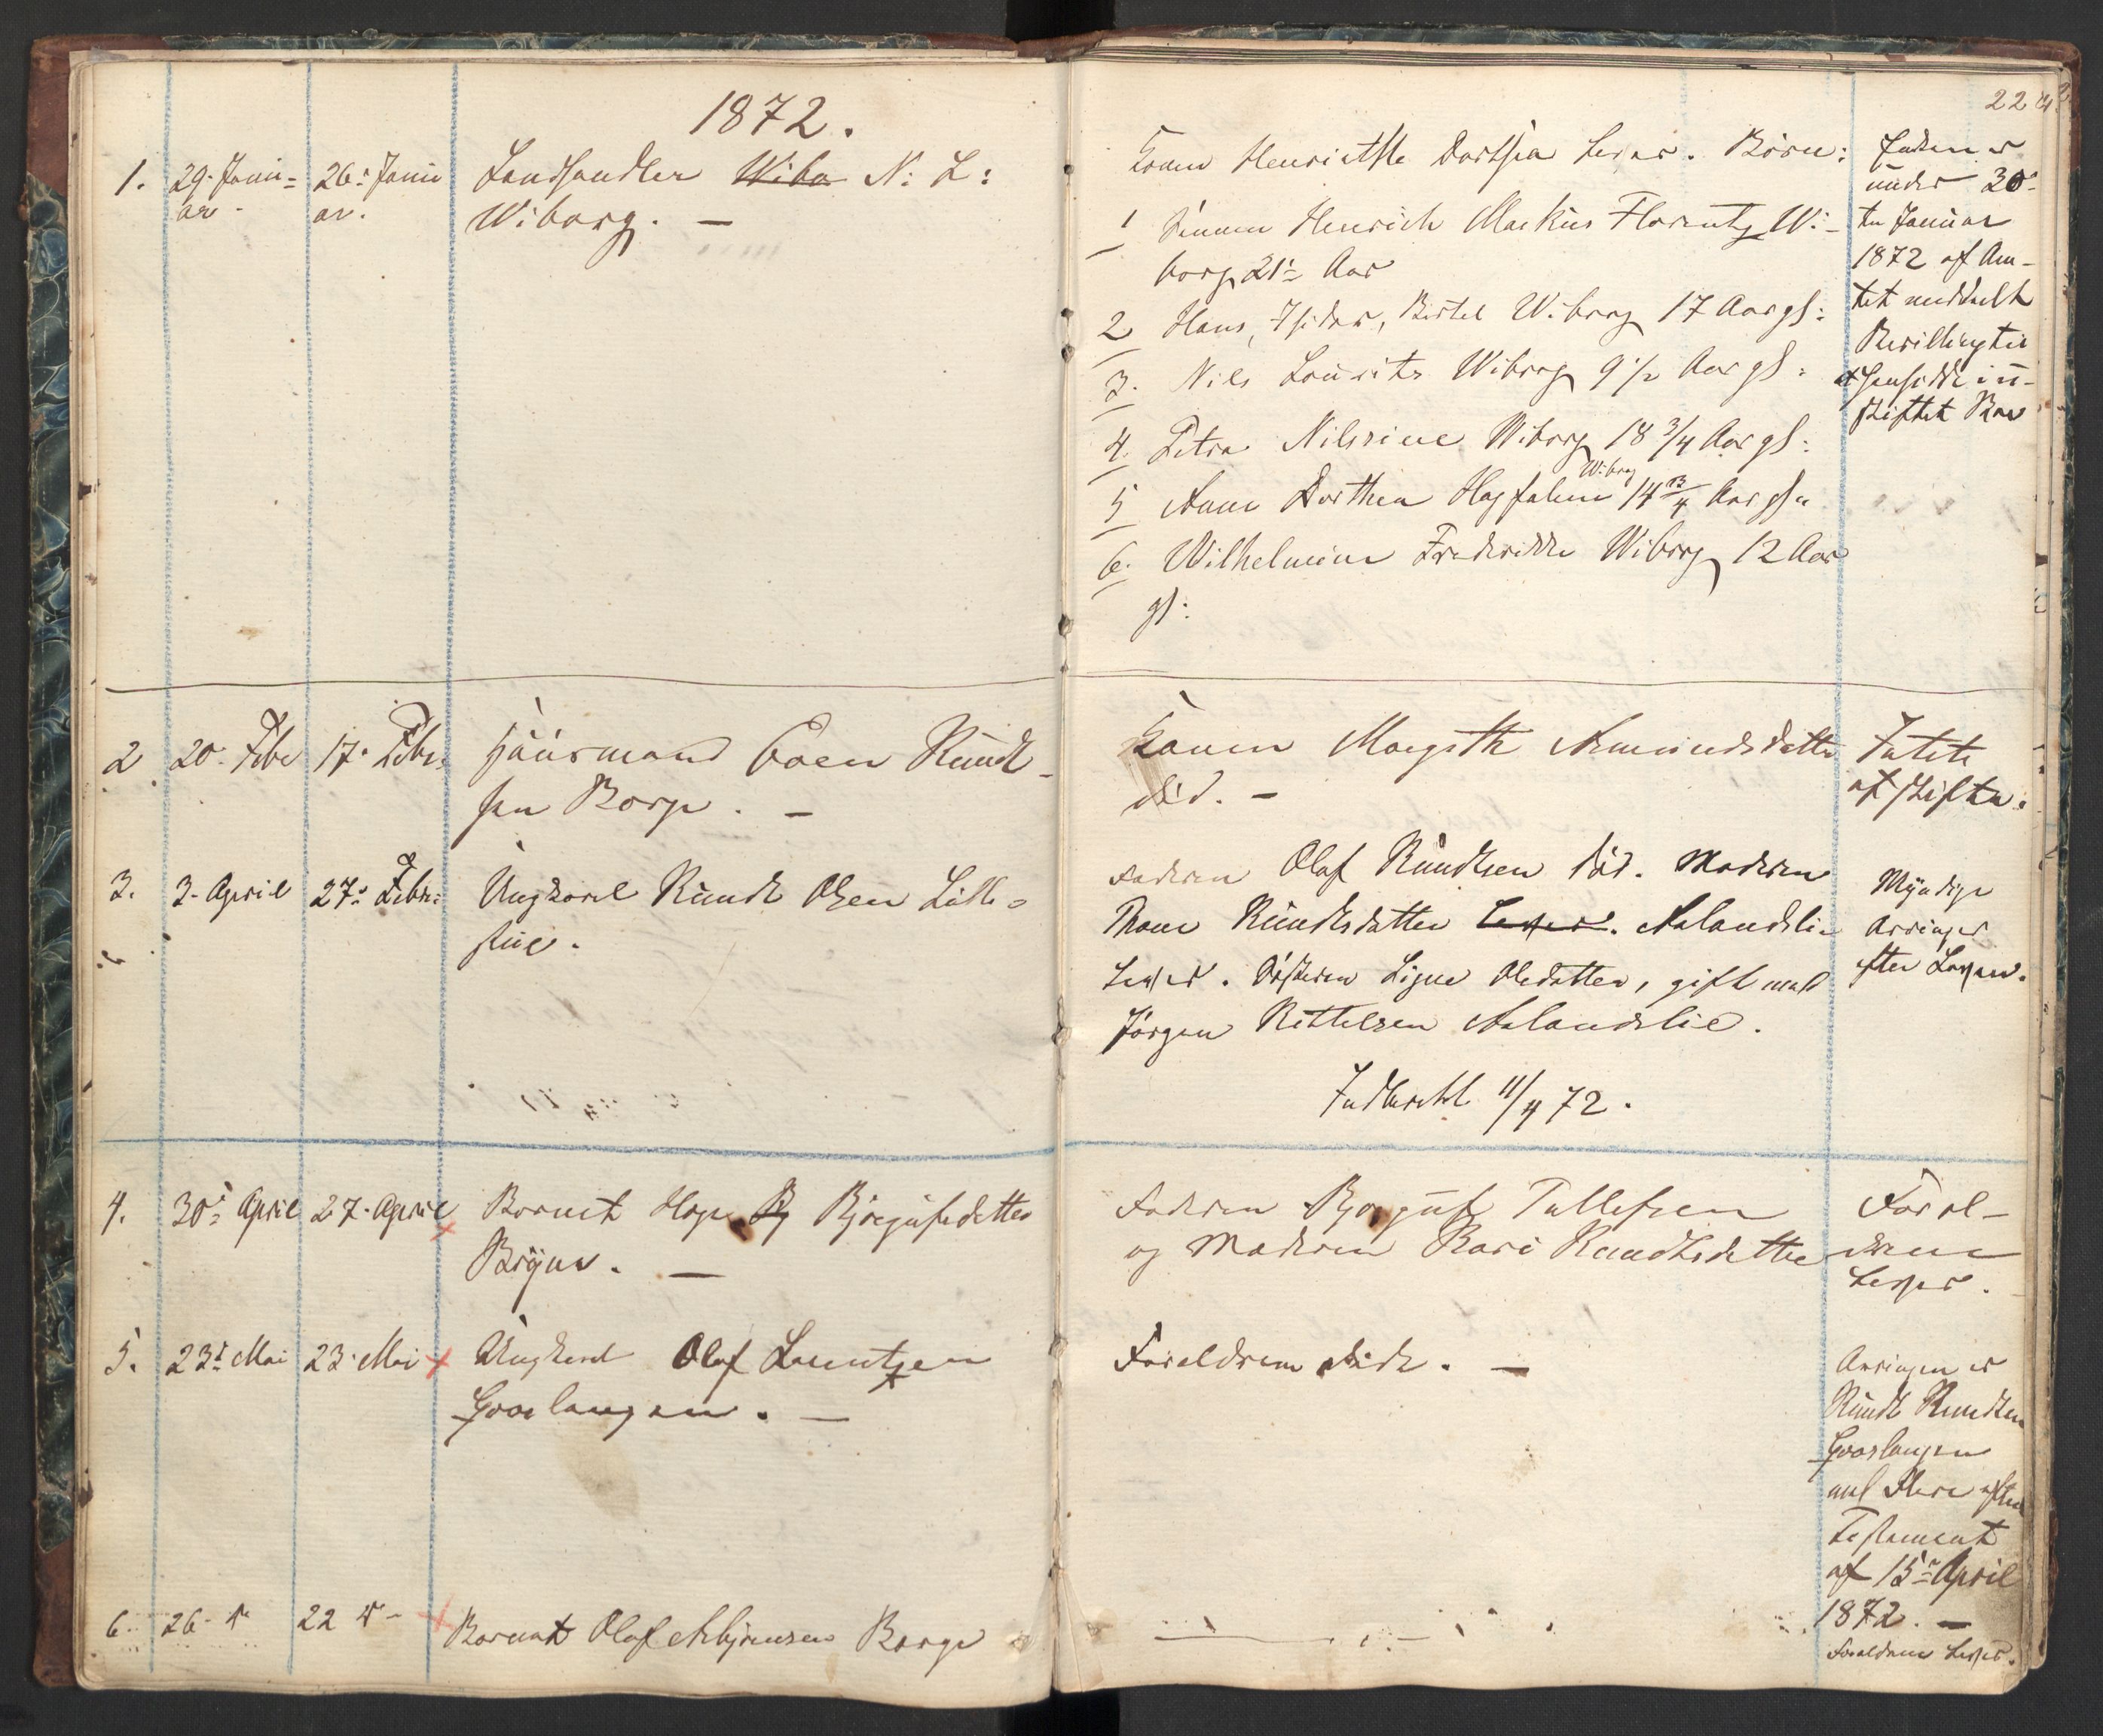 1872.
22
1. 29. Janu- 26. Janu Landhandler Wibo N: L:
ar. ar. Wiborg. —
Konen Henriette Dorthea lever. Børn:
1 Sønnen Henrich Markus Florentz Wi-
borg 21 Aar
2 Hans, Isidor, Bertel Wiborg 17 Aar gl:
3. Nils Lauritz Wiborg 9 1/2 Aar gl:
4. Petra Nilsine Wiborg 18 3/4 Aar gl:
Wiborg
5 Anne Dorthea Hagfaline 14 3/4 Aar gl:
6. Wilhelmine Frederikke Wiborg 12 Aar
gl:
Enken er
under 30
te Januar
1872 af Am-
tet meddelt
Bevilling til
at hensidde i u-
skiftet Boe
2 20. Febr 17. Febr: Huusmand Even Knud-
sen Borge. —
Konen Margith Amundsdatter
død. —
Intet
at skifte.
3. 3. April 27. Febr: Ungkarl Knud Olsen Lille-
stue.
Faderen Olaf Knudsen død. Moderen
Thone Knudsdatter lever. Aalandslie
lever. Søsteren Signe Olsdatter, gift med
Jørgen Kittelsen Aalandslie.
Indberettet 11/4 72.
Myndige
Arvinger
efter Loven.
4. 30. April 27. April Barnet Hage Bj Bjørgufsdatter
Brijnn. —
Faderen Bjørguf Tallefsen
og Moderen Kari Knudsdatter
Foræl-
drene
lever.
5. 23. Mai 23. Mai Ungkarl Olaf Lauritzen
Groslangen. —
Forældrene døde. —
Arvingen er
Knud Knudsen
Groslangen
med Flere efter
Testament
af 15 April
1872. —
6. 26. 22 Barnet Olaf Asbjørnsen Borge
Forældrene lever.